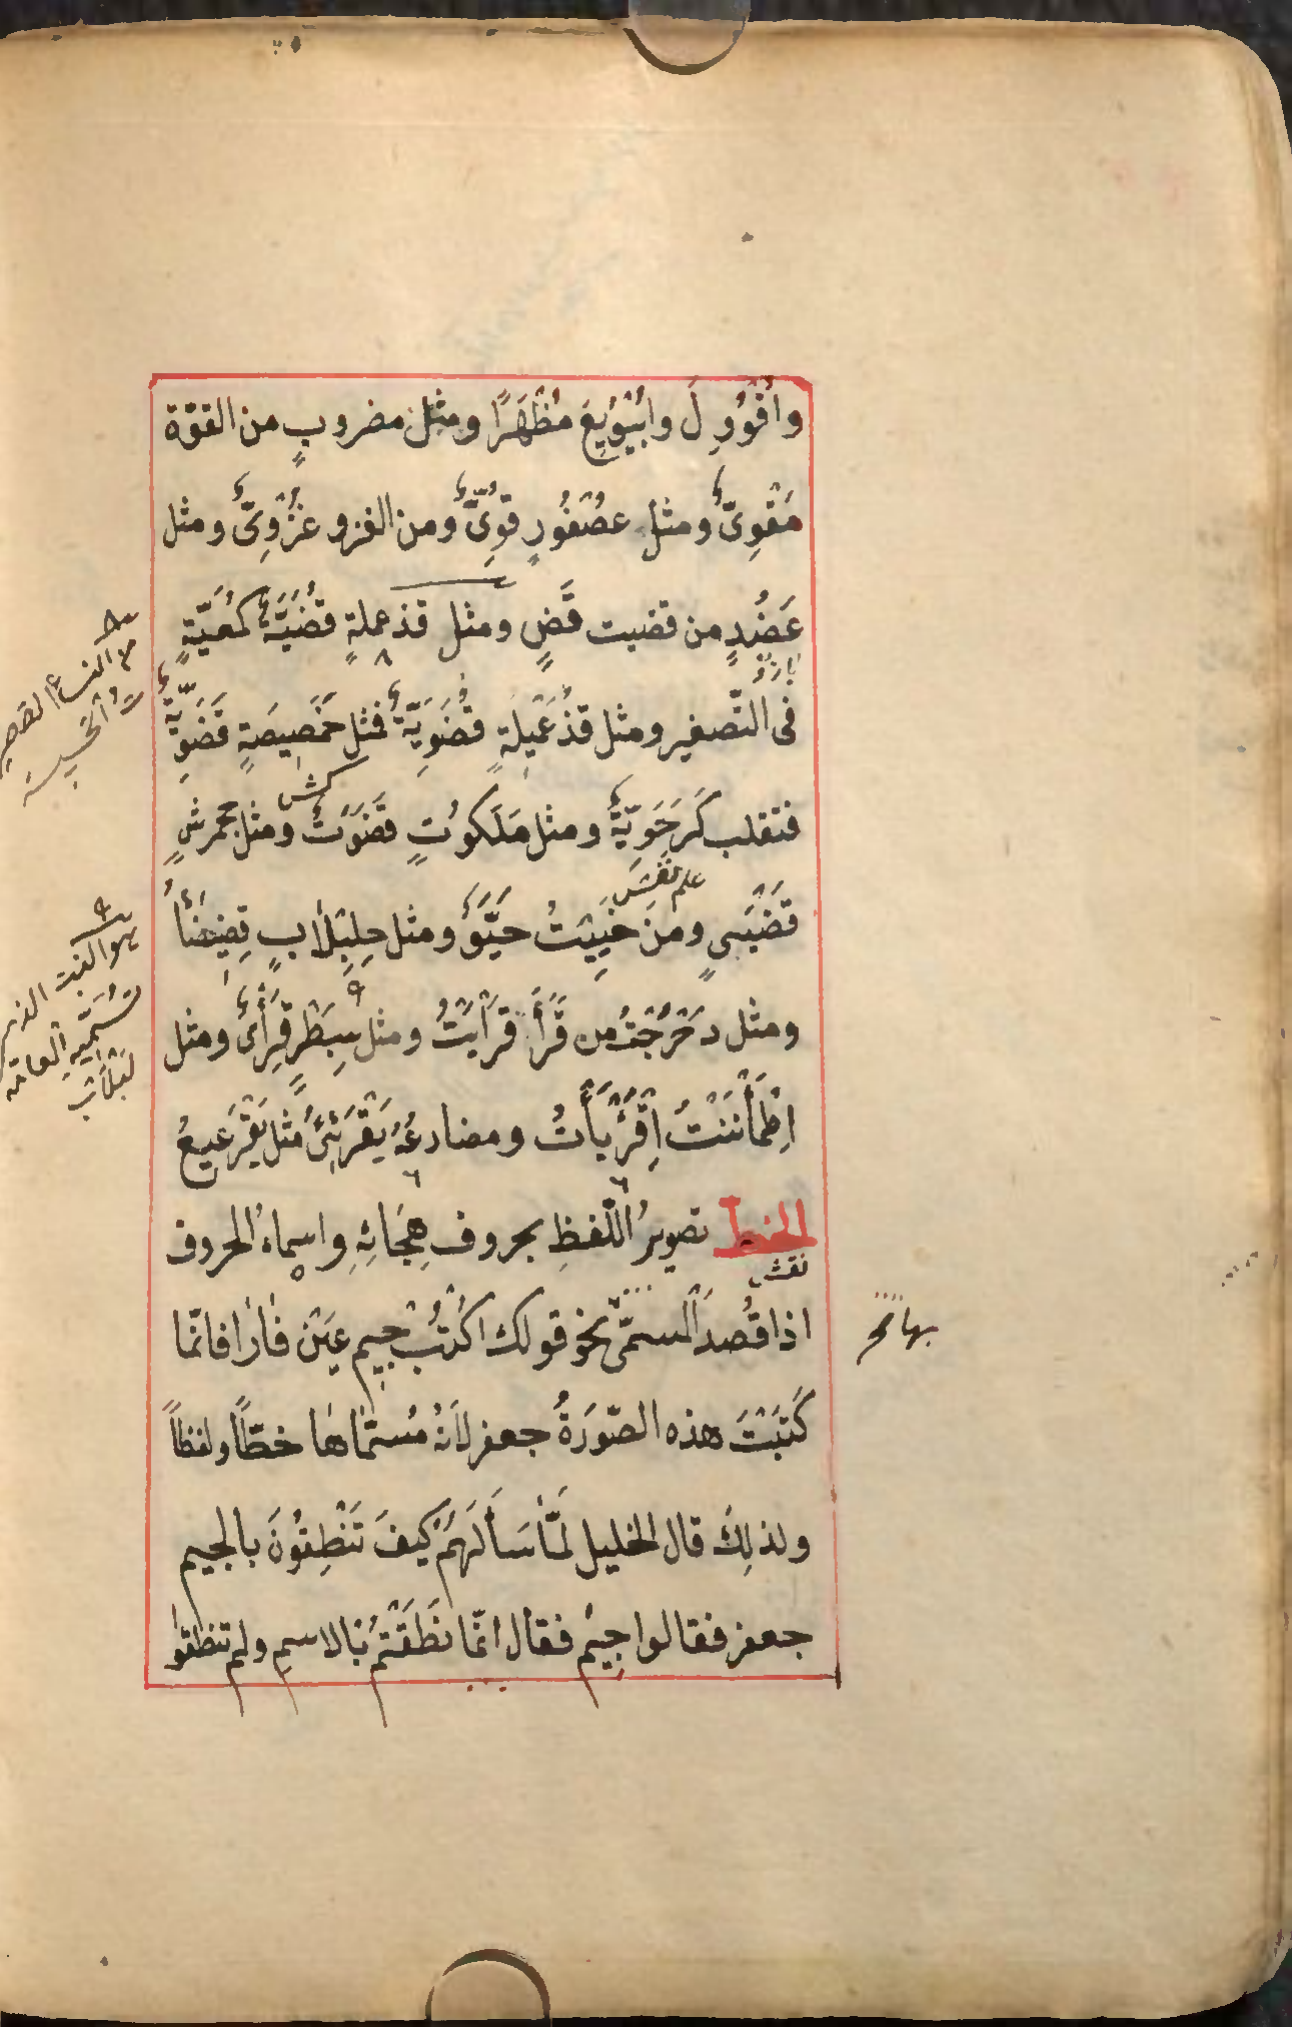 واُقْوُوِلَ وابْيُوْيِعَ مُظْهَرًا ومثل مضروبٍ من القوّة
مَقْوِىٌّ ومثل عُصْفُورٍ قُوِّىٌّ ومن الغزو غُزْوِىٌّ ومثل
عَضُدٍ من قضيت قَضٍ ومثل قذعملةٍ قُضَيَّةٌ كمُعَيَّةٍ
فى التّصغير ومثل قذَعْمِيلَةٍ قُضَوِيَّةٌ فمثل حَمَصِيصَةٍ قَضَوِيَّةٌ
فتقلب كَرَحَوِيَّةٌ ومثل مَلَكوُتٍ قَضَوُتٌ ومثل جحمرشٍ
قَضْيَىٍ ومن حَيِيتُ حَيَّوٌ ومثل حِلِبْلاَبٍ قِضِيضَاءٌ
ومثل دَحْرَجْتُ من قَرَأَ قرَاَيْتُ ومثل سِبَطْرٍ قِرَأْىٌ ومثل
اِطْمَأْنَنْتُ اِقْرَأْيَأْتُ ومضارعُهُ يَقْرَئِىُّ مثل يَقْرَعِيعُ
الخط تصويرُ اللّفظِ بحروف هِجَائِهِ واسماءُ الحروف
نقش
اذا قُصِدَ المسمّى نحو قولك اكتُبْ جيم عيَنْ فاراْ فانّما
كَتَبْتَ هذه الصّورَةَ جعفر لانهُ مُسمّاهَا خطّاً ولفظاً
ولذلِكَ قال الخليل لَمَّا سَأَلَهُمْ كيفَ تَنْطِقُونَ بالجيم
جعفر فقالوا جِيمْ فقال انّما نَطَقْتُمْ بالاسم ولم تنطقوا
هو النبت الذى
تُسَمّيهِ العامّه
لبْلاَبْ